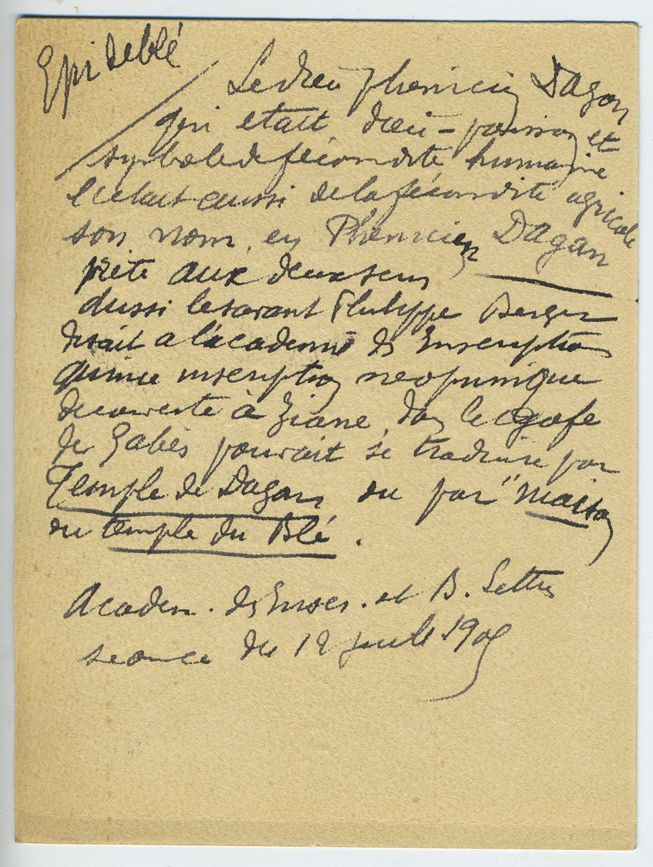 Epi de blé
Le dieu phenicien Dagon
qui etait dieu-poisson et
symbole de fécondité humaine
l'etait aussi de la fécondité agricole
son nom, en Phenicien Dagan
prete aux deux sens
aussi le savant Philippe Berger
disait a l'academie des Inscriptions
qu'une inscription neopunique
decouverte à Ziane, dans le golfe
de Gabès pouvait se traduire par
Temple de Dagan ou par "maison
ou temple du Blé.
Academ. des Inscr. et B. Lettres
seance du 12 juil 1905